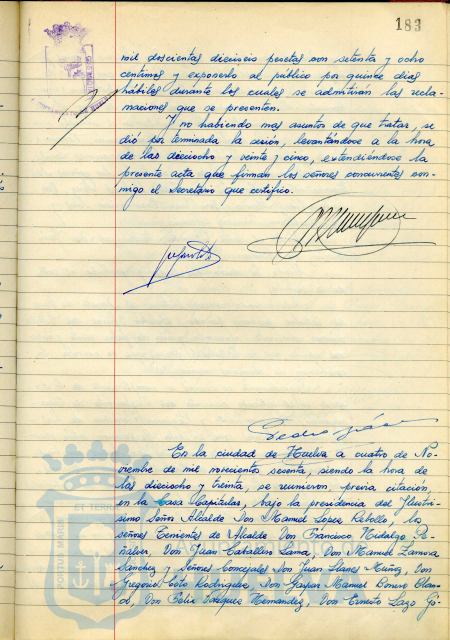 183
mil doscientas dieciseis pesetas con setenta y ocho
centimos y exponerlo al público por quince dias
hábiles durante los cuales se admitirán las recla-
maciones que se presenten.
Y no habiendo mas asuntos de que tratar, se
dió por terminada la sesión, levantándose a la hora
de las dieciocho y veinte y cinco, extendiéndose la
presente acta que firman los señores concurrentes con-
migo el Secretario que certifico.
Pedro
En la ciudad de Huelva a cuatro de No-
viembre de mil novecientos sesenta, siendo la hora de
las dieciocho y treinta, se reunieron, previa citación,
en la Casa Capitular, bajo la presidencia del Ilustri-
simo Señor Alcalde Don Manuel López Rebollo, los
señores Tenientes de Alcalde Don Francisco Hidalgo Pe-
ñalver, Don Juan Caballero Lama, Don Manuel Zamora
Sánchez y Señores Concejales Don Juan Llanes Muñoz, Don
Gregorio Soto Rodríguez, Don Gaspar Manuel Bonero
Don Felix Vázquez Hernández, Don Ernesto Lazo
PORTUS MARIS
ET TERRAE